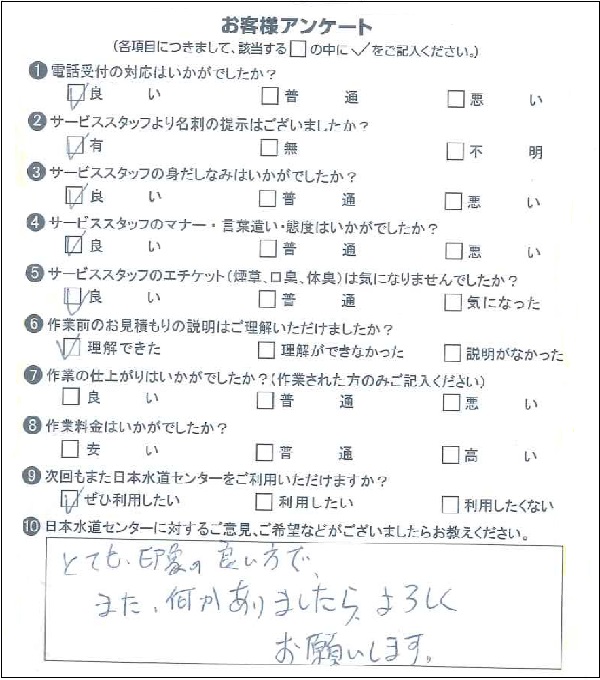 お客様アンケート
(各項目につきまして、該当する□の中に✓をご記入ください。)
❶電話受付の対応はいかがでしたか?
☑良い □普通 □悪い
❷サービススタッフより名刺の提示はございましたか?
☑有 □無 □不明
❸サービススタッフの身だしなみはいかがでしたか?
☑良い □普通 □悪い
❹サービススタッフのマナー・言葉遣い・態度はいかがでしたか?
☑良い □普通 □悪い
❺サービススタッフのエチケット(煙草、口臭、体臭)は気になりませんでしたか?
☑良い □普通 □気になった
❻作業前のお見積もりの説明はご理解いただけましたか?
☑理解できた □理解ができなかった □説明がなかった
❼作業の仕上がりはいかがでしたか?(作業された方のみご記入ください)
□良い □普通 □悪い
❽作業料金はいかがでしたか?
□安い □普通 □高い
❾次回もまた日本水道センターをご利用いただけますか?
☑ぜひ利用したい □利用したい □利用したくない
❿日本水道センターに対するご意見、ご希望などがございましたらお教えください。
とても、印象の良い方で、
また、何かありましたら、よろしく
お願いします。